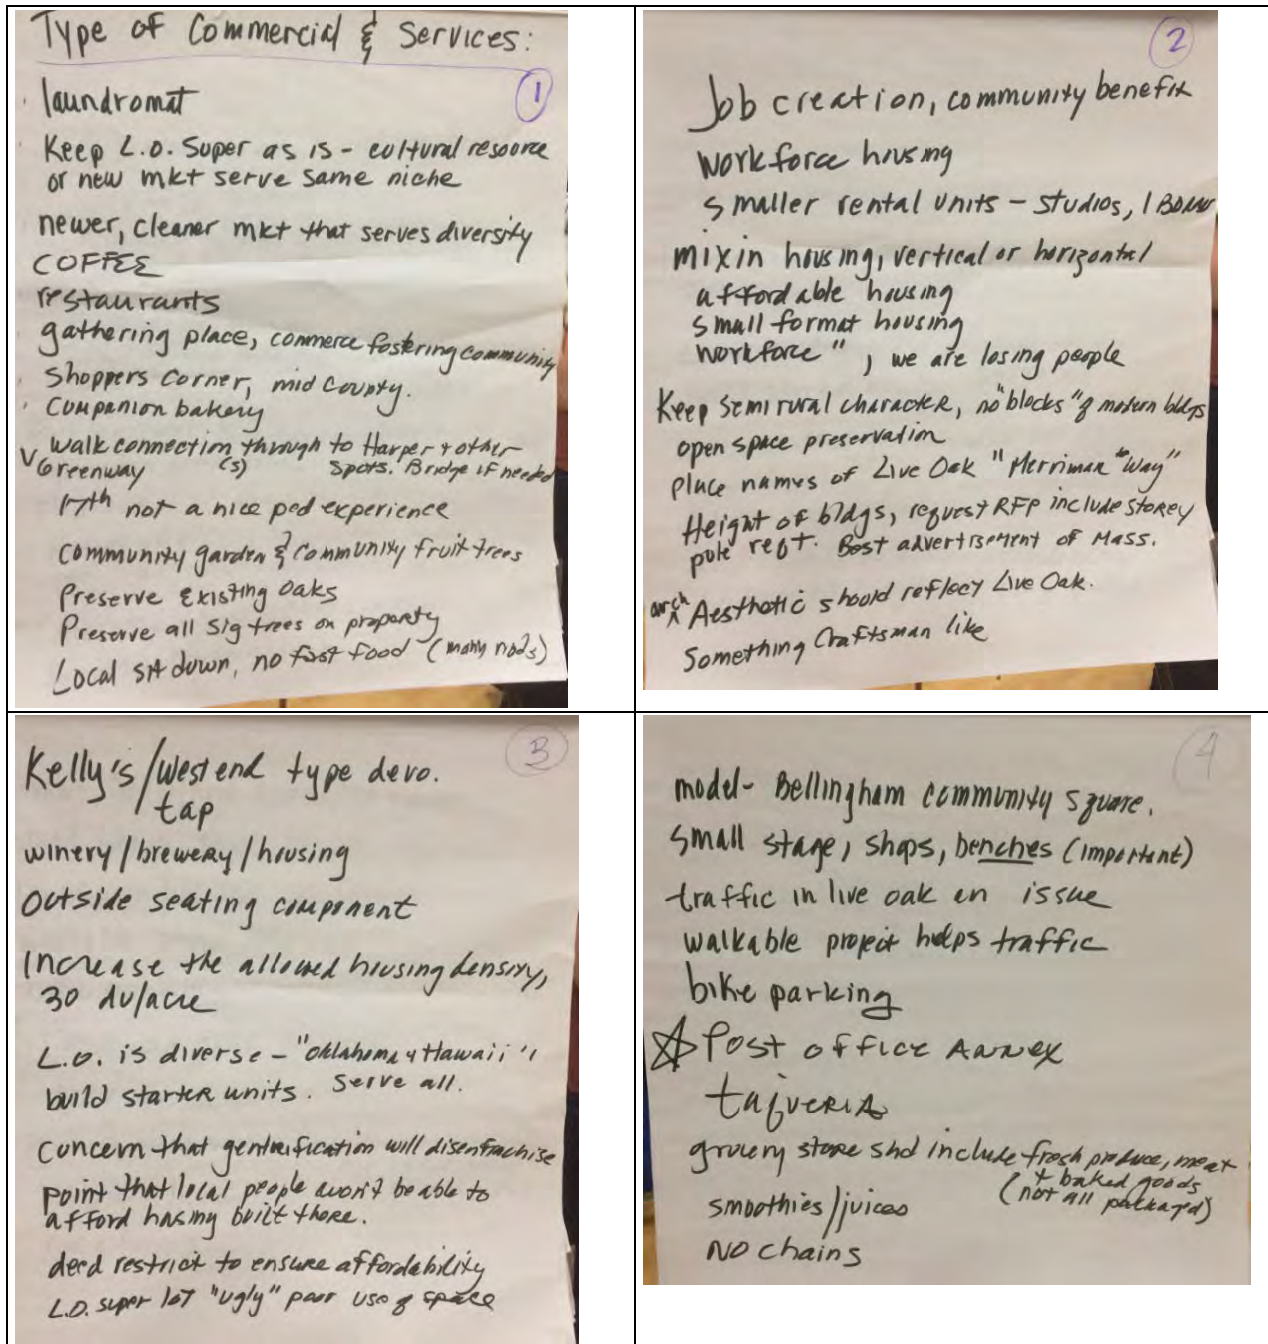 Type of Commercial & Services:
1
laundromat
Keep L.O. Super as is - cultural resource
or new mkt serve same niche
newer, cleaner mkt that serves diversity
COFFEE
restaurants
gathering place, commerce fostering community
Shoppers Corner, mid County.
Companion bakery
walk connection(s) through to Harper & other
Greenway spots. Bridge if needed
17th not a nice ped experience
Community garden & Community fruit trees
Preserve Existing Oaks
Preserve all Sig trees on property
Local sit down, no fast food - (many nods)
2
Job creation, community benefit
workforce housing
smaller rental units - studios, 1 BDRM
mix in housing, vertical or horizontal
affordable housing
small format housing
workforce ", we are losing people
Keep semi rural character, no "blocks" of modern bldgs
open space preservation
place names of Live Oak "Merriman Way"
Height of bldgs, request RFP include storey
pole reqt. Best advertisement of Mass.
arch Aesthetic should reflect Live Oak.
Something Craftsman like
3
Kelly's/West end type devo.
/tap
winery/brewery/housing
outside seating component
Increase the allowed housing density,
30 du/acre
L.O. is diverse - "Oklahoma & Hawaii"
build starter units. Serve all.
Concern that gentrification will disenfrachise
point that local people won't be able to
afford housing built there.
deed restrict to ensure affordability
L.O. super lot "ugly" poor use of space
4
model - Bellingham community square.
small stage, shops, benches (important)
traffic in live oak an issue
walkable project helps traffic
bike parking
☆ Post office Annex
taqueria
grocery store shd include fresh produce, meat
+ baked goods
(not all packaged)
smoothies/juices
NO chains